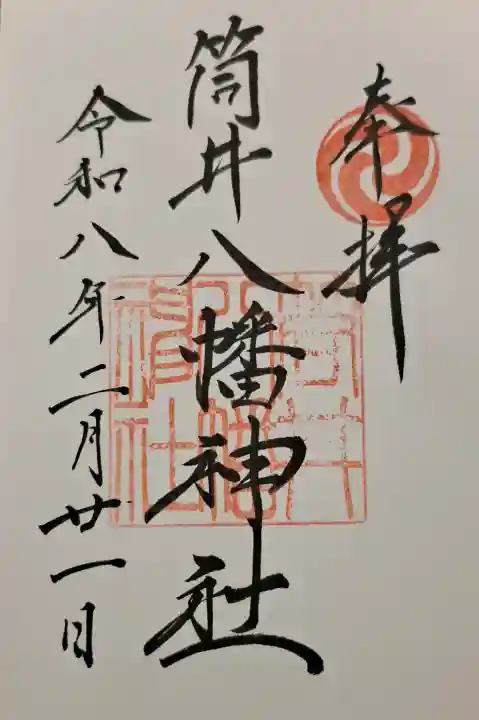 奉拝
筒井八幡神社
令和八年二月廿一日